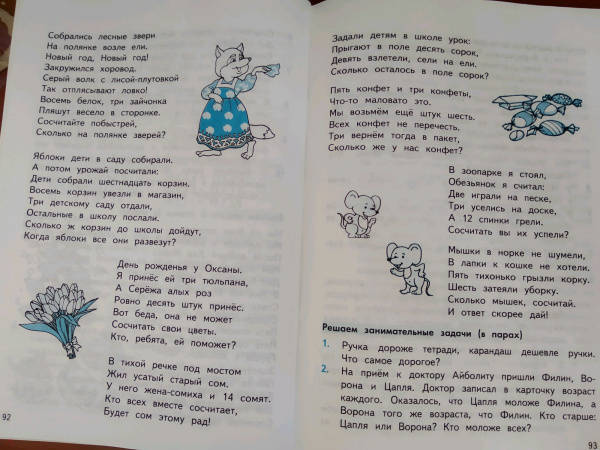 Собрались лесные звери
На полянке возле ели.
Новый год, Новый год!
Закружился хоровод.
Серый волк с лисой-плутовкой
Так отплясывают ловко!
Восемь белок, три зайчонка
Пляшут весело в сторонке.
Сосчитайте побыстрей,
Сколько на полянке зверей?
Яблоки дети в саду собирали.
А потом урожай посчитали:
Дети собрали шестнадцать корзин.
Восемь корзин увезли в магазин,
Три детскому саду отдали,
Остальные в школу послали.
Сколько ж корзин до школы дойдут,
Когда яблоки все они развезут?
День рожденья у Оксаны.
Я принёс ей три тюльпана,
А Серёжа алых роз
Ровно десять штук принёс.
Вот беда, она не может
Сосчитать свои цветы.
Кто, ребята, ей поможет?
В тихой речке под мостом
Жил усатый старый сом.
У него жена-сомиха и 14 сомят.
Кто всех вместе сосчитает,
Будет сом этому рад!
92
Задали детям в школе урок:
Прыгают в поле десять сорок,
Девять взлетели, сели на ели.
Сколько осталось в поле сорок?
Пять конфет и три конфеты,
Что-то маловато это.
Мы возьмём ещё штук шесть.
Всех конфет не перечесть.
Три вернём тогда в пакет,
Сколько же у нас конфет?
В зоопарке я стоял,
Обезьянок я считал:
Две играли на песке,
Три уселись на доске,
А 12 спинки грели.
Сосчитать вы их успели?
Мышки в норке не шумели,
В лапки к кошке не хотели.
Пять тихонько грызли корку.
Шесть затеяли уборку.
Сколько мышек, сосчитай.
И ответ скорее дай!
Решаем занимательные задачи (в парах)
1. Ручка дороже тетради, карандаш дешевле ручки.
Что самое дорогое?
2. На приём к доктору Айболиту пришли Филин, Во-
рона и Цапля. Доктор записал в карточку возраст
каждого. Оказалось, что Цапля моложе Филина, а
Ворона того же возраста, что Филин. Кто старше:
Цапля или Ворона? Кто моложе всех?
93